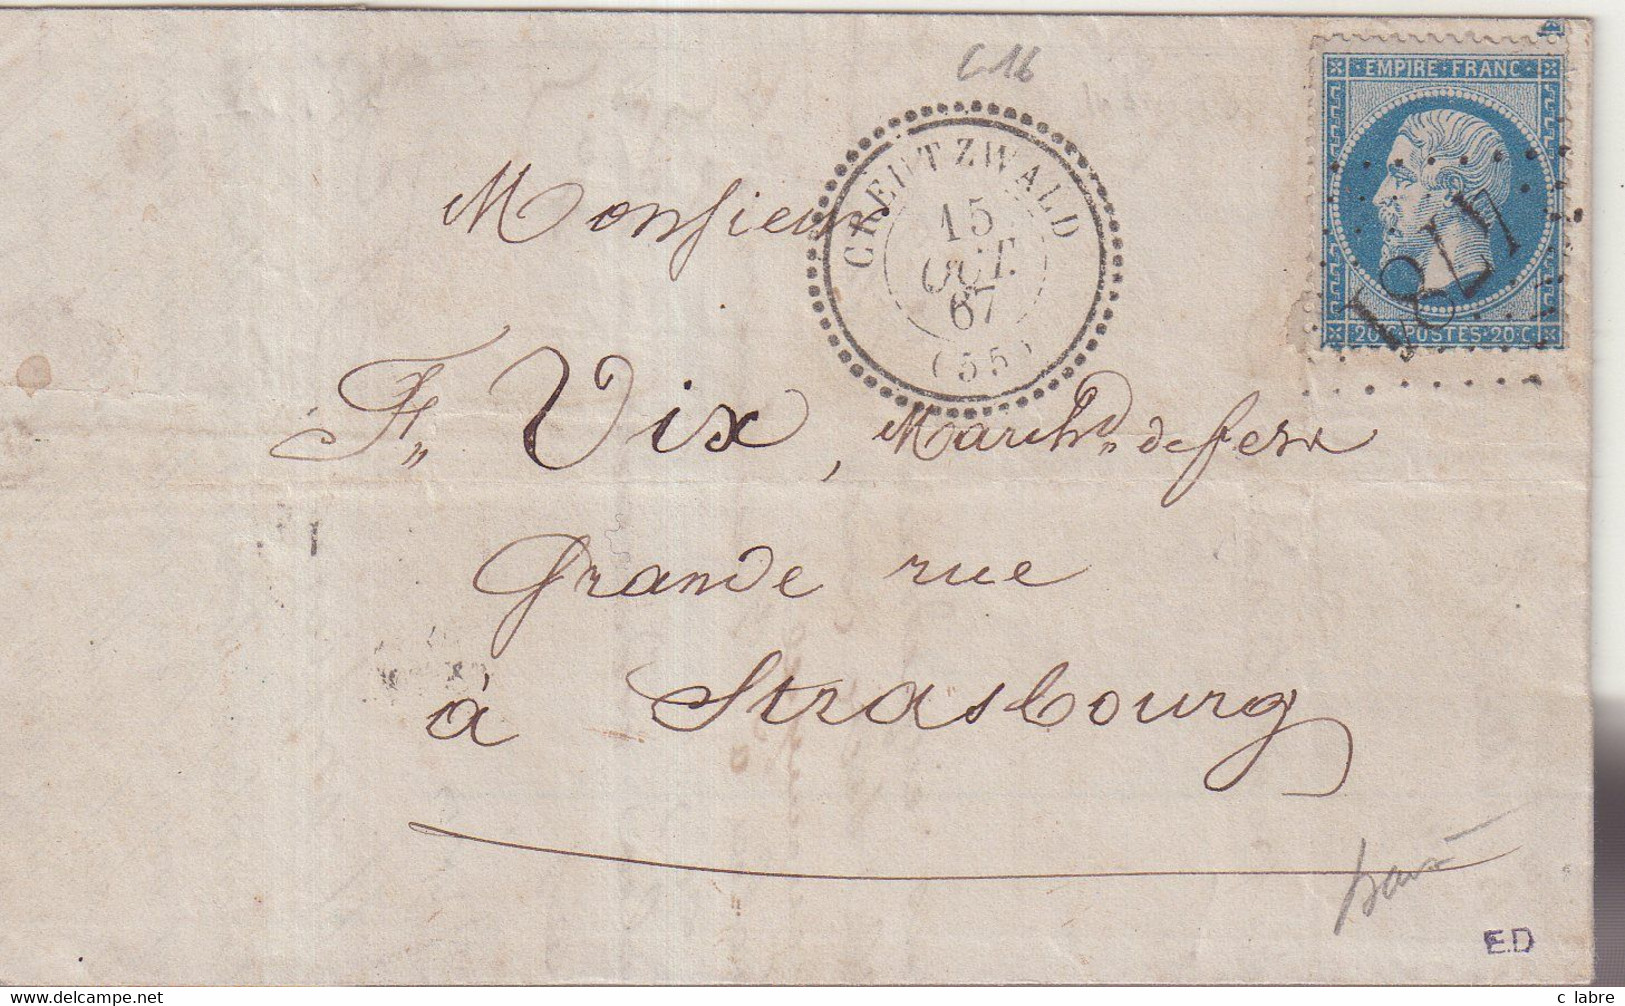 EMPIRE FRANC
CREUTZWALD
15
OCT.
67
(55)
20 C. POSTES 20 C.
Monsieur
Fr. Vix, Marchd. de fer
Grande rue
à Strasbourg
E.D
www.delcampe.net
c labre